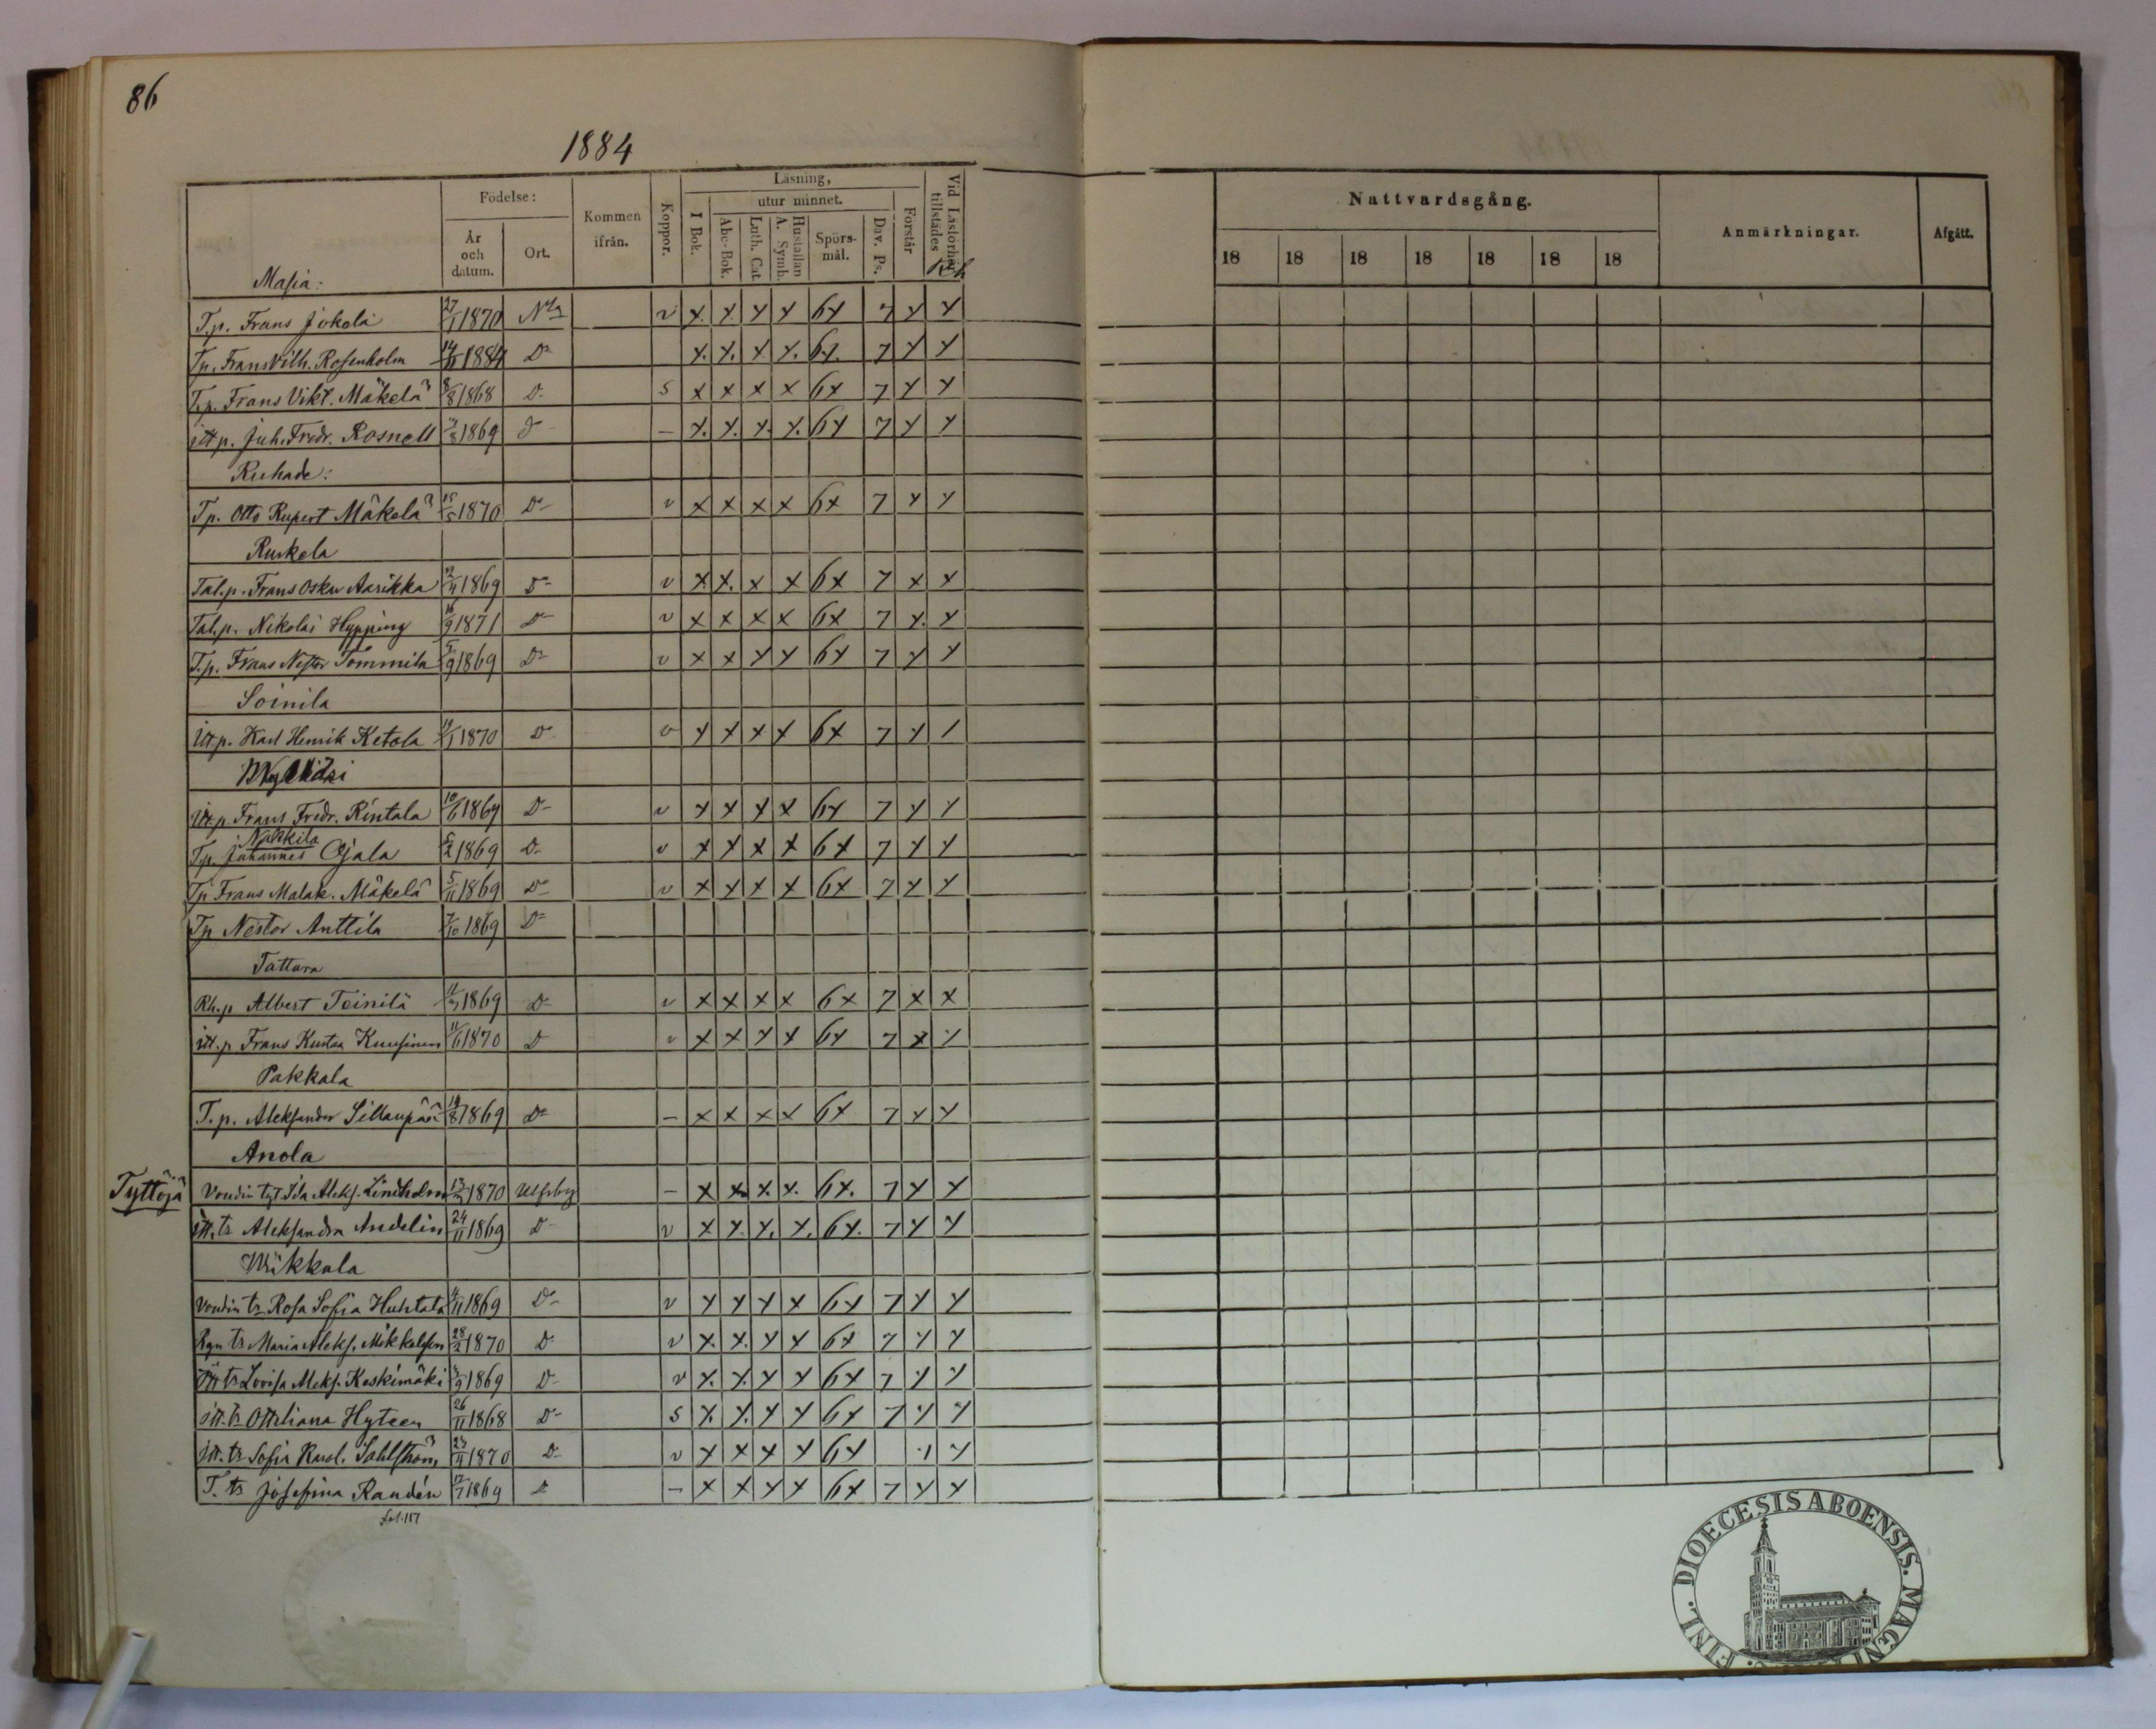 86
1884
Födelse:
Kommen ifrån.
Koppor.
Läsning,
utur minnet.
I Bok.
Abc-Bok.
Luth. Cat.
Hustaflan A. Symb.
Spörs-mål.
Dav. Ps.
Förstår
Vid Läsförhör tillstädes
År och datum.
Ort.
Nattvardsgång.
Anmärkningar.
Afgått.
18 18 18 18 18 18 18
Masia:
T.p. Frans Jokela 27/1 1870 v x x x x 6x 7 x x
Tp. Frans Vilh. Rosenholm 1884 D:o x. x. x. x. 6x. 7 x x
T.p. Frans Vikt. Mäkelä 8/8 1868 D. s x x x x 6x 7 x x
itt p. Juh. Fredr. Rosnell 1869 d – x. x. x. x. 6x 7 x x
Ruhade:
T.p. Otto Rupert Mäkelä 15/5 1870 D:o v x x x x 6x 7 x x
Ruskela
Tal.p. Frans Oskar Aarikka 1869 D:o v x x. x x 6x 7 x x
Tal.p. Nikolai Hypping 16/9 1871 D:o v x x x x 6x 7 x. x
T.p. Frans Nestor Tommila 5/9 1869 D:o v x x x x 6x 7 x x
Soinila
itt.p. Karl Henrik Ketola 19/1 1870 D:o v x x x x 6x 7 x /
itt.p. Frans Fredr. Rintala 10/6 1869 D:o v x x x x 6x 7 x x
Nakkila
T.p. Juhannes Ojala 1869 D:o v x x x x 6x 7 x x
Tp Frans Malak. Mäkelä 5/11 1869 D:o v x x x x 6x 7 x x
Tp Nestor Anttila 7/10 1869 D:o
Tattara
Rh.p Albert Toinila 1869 D:o v x x x x 6x 7 x x
itt.p Frans Kustaa Kuusinen 11/6 1870 D v x x x x 6x 7 x x
Pakkala
T.p. Aleksander Sillanpää 19/8 1869 D:o – x x x x 6x 7 x x
Anola
Tyttöjä
Voudin tyt. Ida Aleks. Lindholm 1870 Ulfsby – x x. x. x. 6x. 7 x x
itt. tr Aleksandra Andelin 24/11 1869 D:o v x x. x. x. 6x. 7 x x
Wiikkala
Voudin tr. Rosa Sofia Huhtala 1869 D:o v x x x x 6x 7 x x
Rgn tr Maria Aleks. Mikkelsson 28/2 1870 D v x. x. x x 6x 7 x x
itt tr Lovisa Aleks. Keskimäki 1869 D:o v x. x. x x 6x 7 x x
itt. tr Ottiliana Hyteen 26/11 1868 D:o s x. x. x x 6x 7 x x
itt. tr Sofia Karol. Sahlström 1870 D:o v x x x x 6x x x
T. tr Josefina Randén 1869 – x x x x 6x 7 x x
DIOECESIS ABOENSIS. MAGNI FINL.